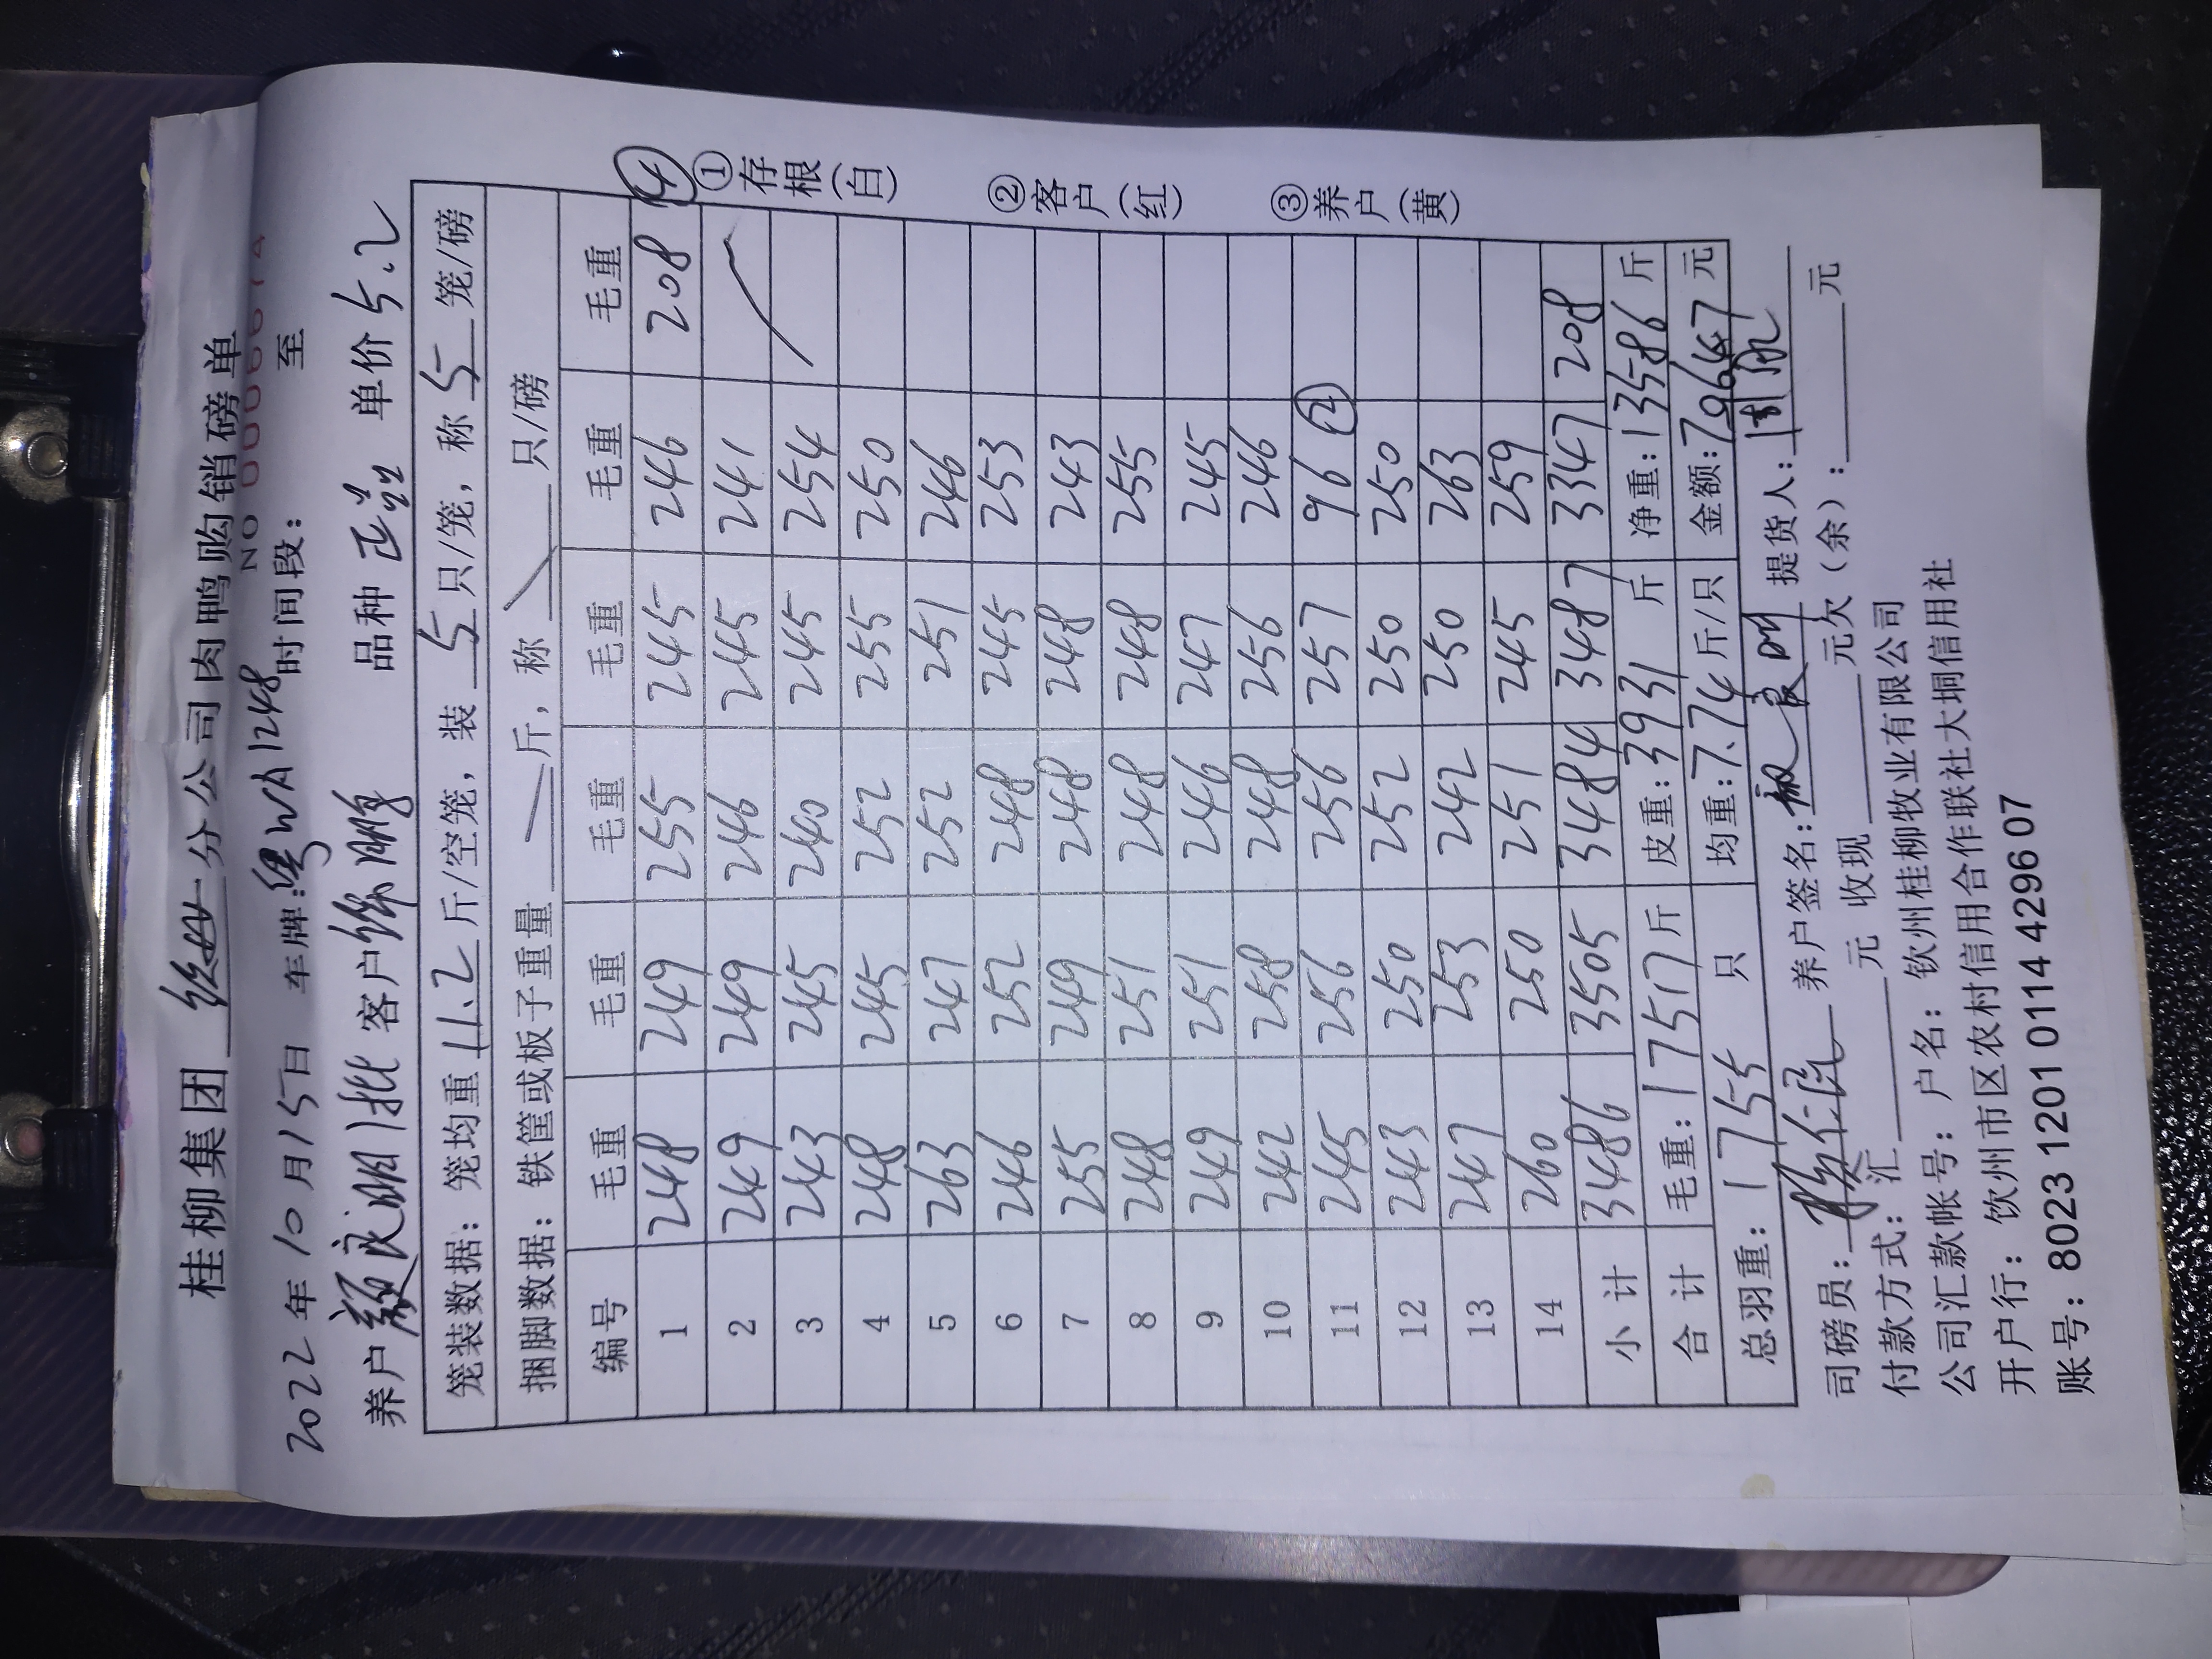 桂柳集团 分公司肉鸭购销磅单
NO 0006674
2022年10月15日 车牌:粤WA1248 时间段: 至
养户 颜良明1批 客户 品种 单价 5.2
笼装数据: 笼均重 11.2 斤/空笼, 装 5 只/笼, 称 5 笼/磅
捆脚数据: 铁筐或板子重量 斤, 称 只/磅
编号 毛重 毛重 毛重 毛重 毛重 毛重
1 248 249 255 245 246 208 ④
2 249 249 246 245 241
3 243 245 240 245 254
4 248 245 252 255 250
5 263 247 252 251 246
6 246 252 248 245 253
7 255 249 248 248 243
8 248 251 248 248 255
9 249 251 246 247 245
10 242 258 248 256 246
11 245 256 256 257 96 ②
12 243 250 252 250 250
13 247 253 242 250 263
14 260 250 251 245 259
小计 3486 3505 3484 3487 3347 208
合计 毛重: 17517 斤 皮重: 3931 斤 净重: 13586 斤
总羽重: 1755 只 均重: 7.74 斤/只 金额: 70647 元
司磅员: 养户签名: 提货人:
付款方式: 汇 元 收现 元欠(余): 元
公司汇款帐号: 户名: 钦州桂柳牧业有限公司
开户行: 钦州市区农村信用合作联社大垌信用社
账号: 8023 1201 0114 4296 07
①存根(白)
②客户(红)
③养户(黄)